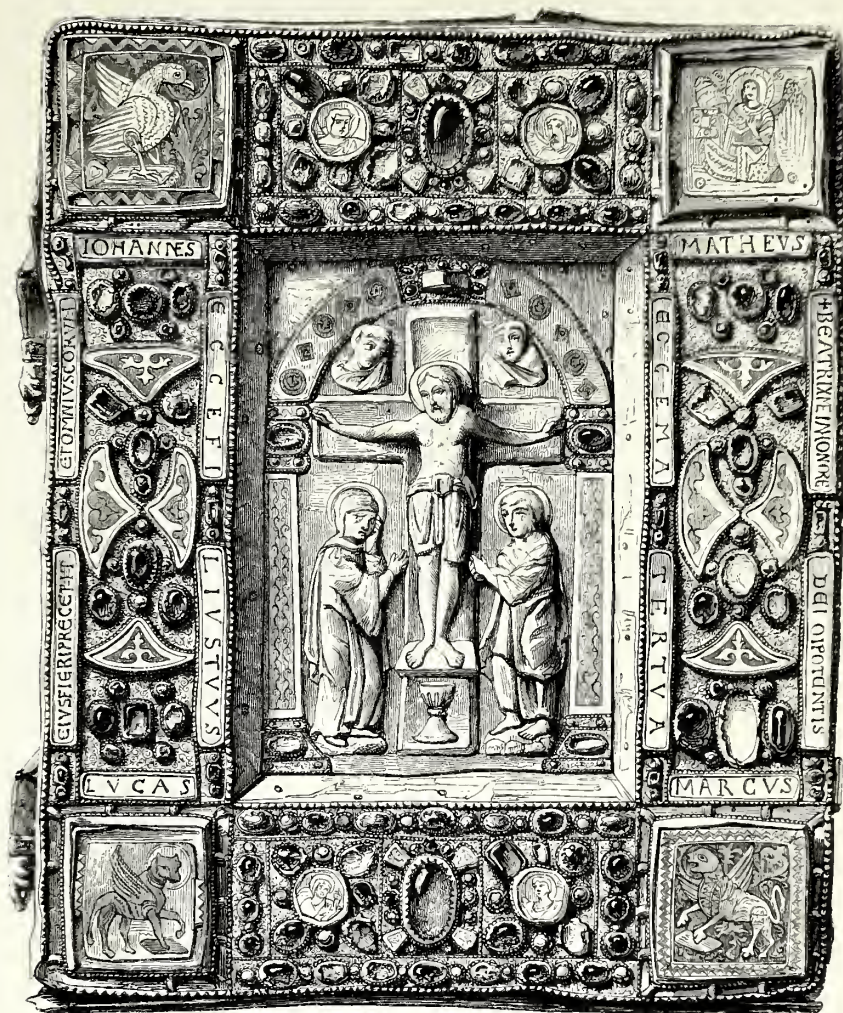 IOHANNES
MATHEVS
ETOMNIVSCORVM
ECCEFI
ECCEMA
EIVSFIERIPRECEPIT
LIVSTVVS
TERTVA
DEI OPOTENTIS
LVCAS
MARCVS